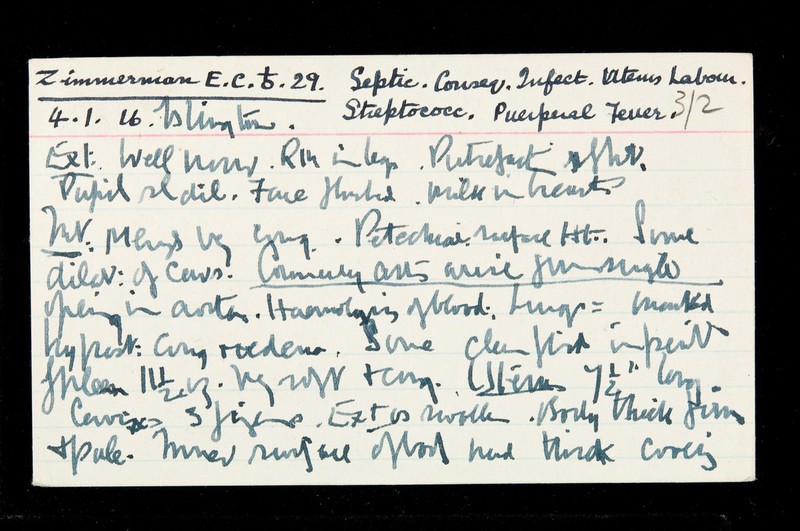 Zimmerman E.C. 29. Septic. Conseq. Infect. Uterus Labour.
4.1.16. Islington. Streptococc. Puerperal Fever. 3/2
Ext. Well nour. R.M in legs. Putrefact
Pupils sl dil. Face flushed. Milk in breasts
Int. Mening v cong. Petechiae surface Ht. Some
dilat: of cavs. Coronary arts arise from single
opening in aorta. Haemolysis of blood. Lungs = marked
hypost: cong + oedema. Some clear fluid in perit
Spleen 11½ oz. v soft + cong. Uterus 7½" long
Cervix 3 fingers. Ext os swollen. Body thick firm
+ pale. Inner surface of body had thick covering